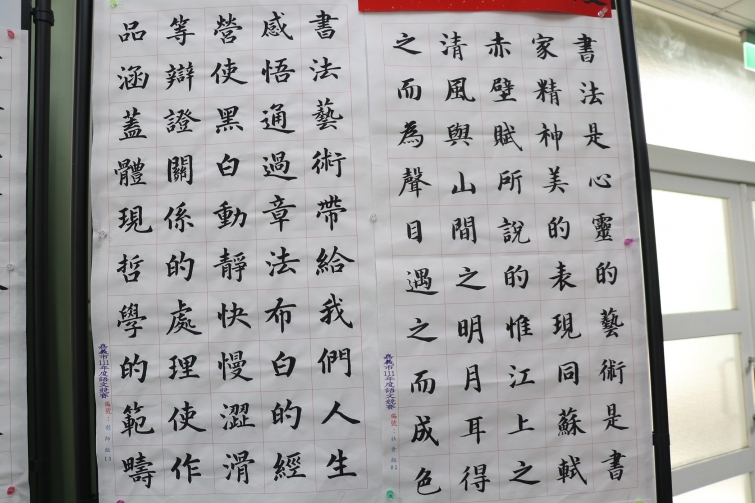 書法是心靈的藝術是書
家精神美的表現同蘇軾
赤壁賦所說的惟江上之
清風與山間之明月耳得
之而為聲目遇之而成色
嘉義市111年度語文競賽
書法藝術帶給我們人生
感悟通過章法布白的經
營使黑白動靜快慢澀滑
等辯證關係的處理使作
品涵蓋體現哲學的範疇
嘉義市111年度語文競賽